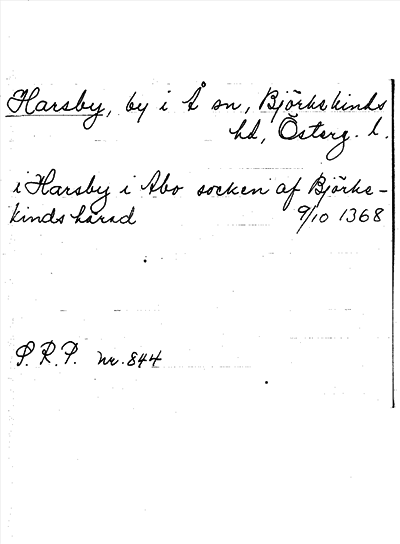 Harsby, by i Å sn, Björkekinds
hd, Österg. l.
i Harsby i Abo socken af Björke-
kinds härad 9/10 1368
P. R. P. nr. 844